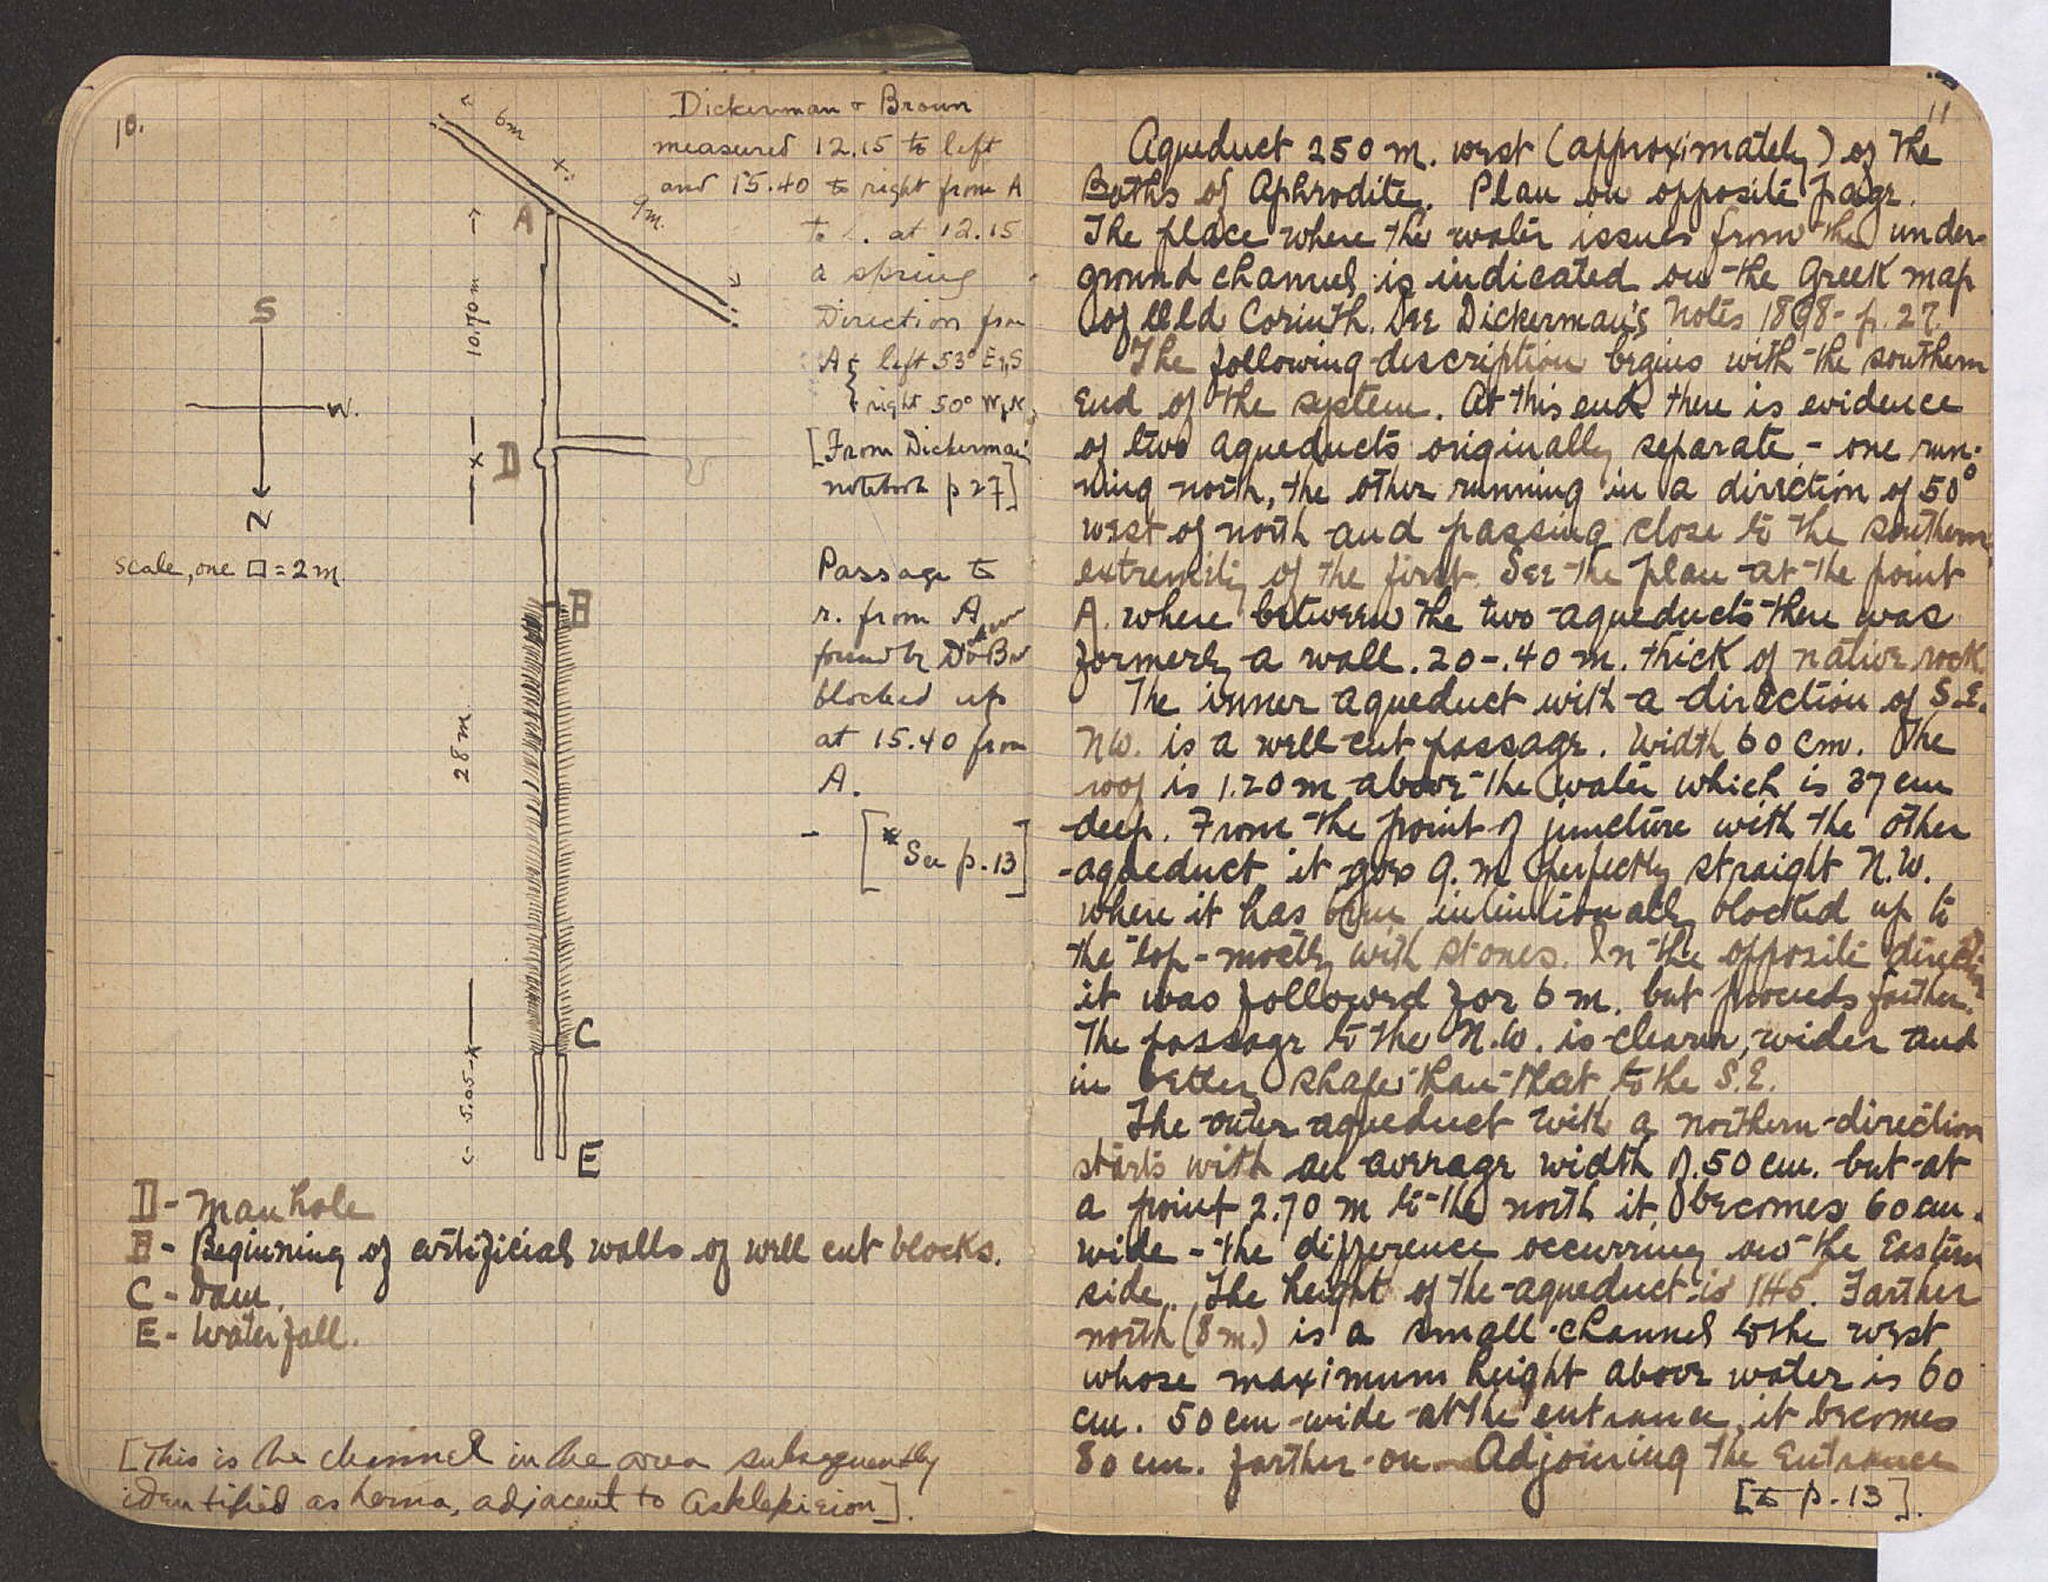 10.
Dickerman + Brown
measured 12.15 to left
and 15.40 to right from A
to . at 12.15
a spring
Direction from
A { left 53° E of S
right 50° W of N
[From Dickerman
notebook p 27]
6m
x
9m.
A
10.70 m
S
W.
N
x
D
scale, one □ = 2 m.
Passage to
r. from A
found by D + Br
blocked up
at 15.40 from
A.
[* See p. 13]
B
28 m.
C
5.05
x
E
D - Manhole
B - Beginning of artificial walls of well cut blocks.
C - Dam.
E - Waterfall.
[This is the channel in the area subsequently
identified as Lerna, adjacent to Asklepieion].
11
Aqueduct 250 m. west (approximately) of the
Baths of Aphrodite. Plan on opposite page.
The place where the water issues from the under-
ground channel is indicated on the Greek map
of Old Corinth. See Dickerman's Notes 1898 - p. 27.
The following description begins with the southern
end of the system. At this end there is evidence
of two aqueducts originally separate - one run-
ning north, the other running in a direction of 50°
west of north and passing close to the southern
extremity of the first. See the plan at the point
A. where between the two aqueducts there was
formerly a wall .20-.40 m. thick of native rock.
The inner aqueduct with a direction of S.E.
NW. is a well cut passage. Width 60 cm. The
roof is 1.20 m above the water which is 37 cm
deep. From the point of juncture with the other
aqueduct it goes 9. m perfectly straight N.W.
where it has been intentionally blocked up to
the top - mostly with stones. In the opposite direction
it was followed for 6 m. but proceeds farther.
The passage to the N.W. is clearer, wider and
in better shape than that to the S.E.
The outer aqueduct with a northern direction
starts with an average width of .50 cm. but at
a point 2.70 m to the north it becomes 60 cm.
wide - the difference occurring on the Eastern
side. The height of the aqueduct is 1.45. Farther
north (8 m.) is a small channel to the west
whose maximum height above water is 60
cm. 50 cm wide at the entrance, it becomes
80 cm. farther on. Adjoining the entrance
[to p. 13].